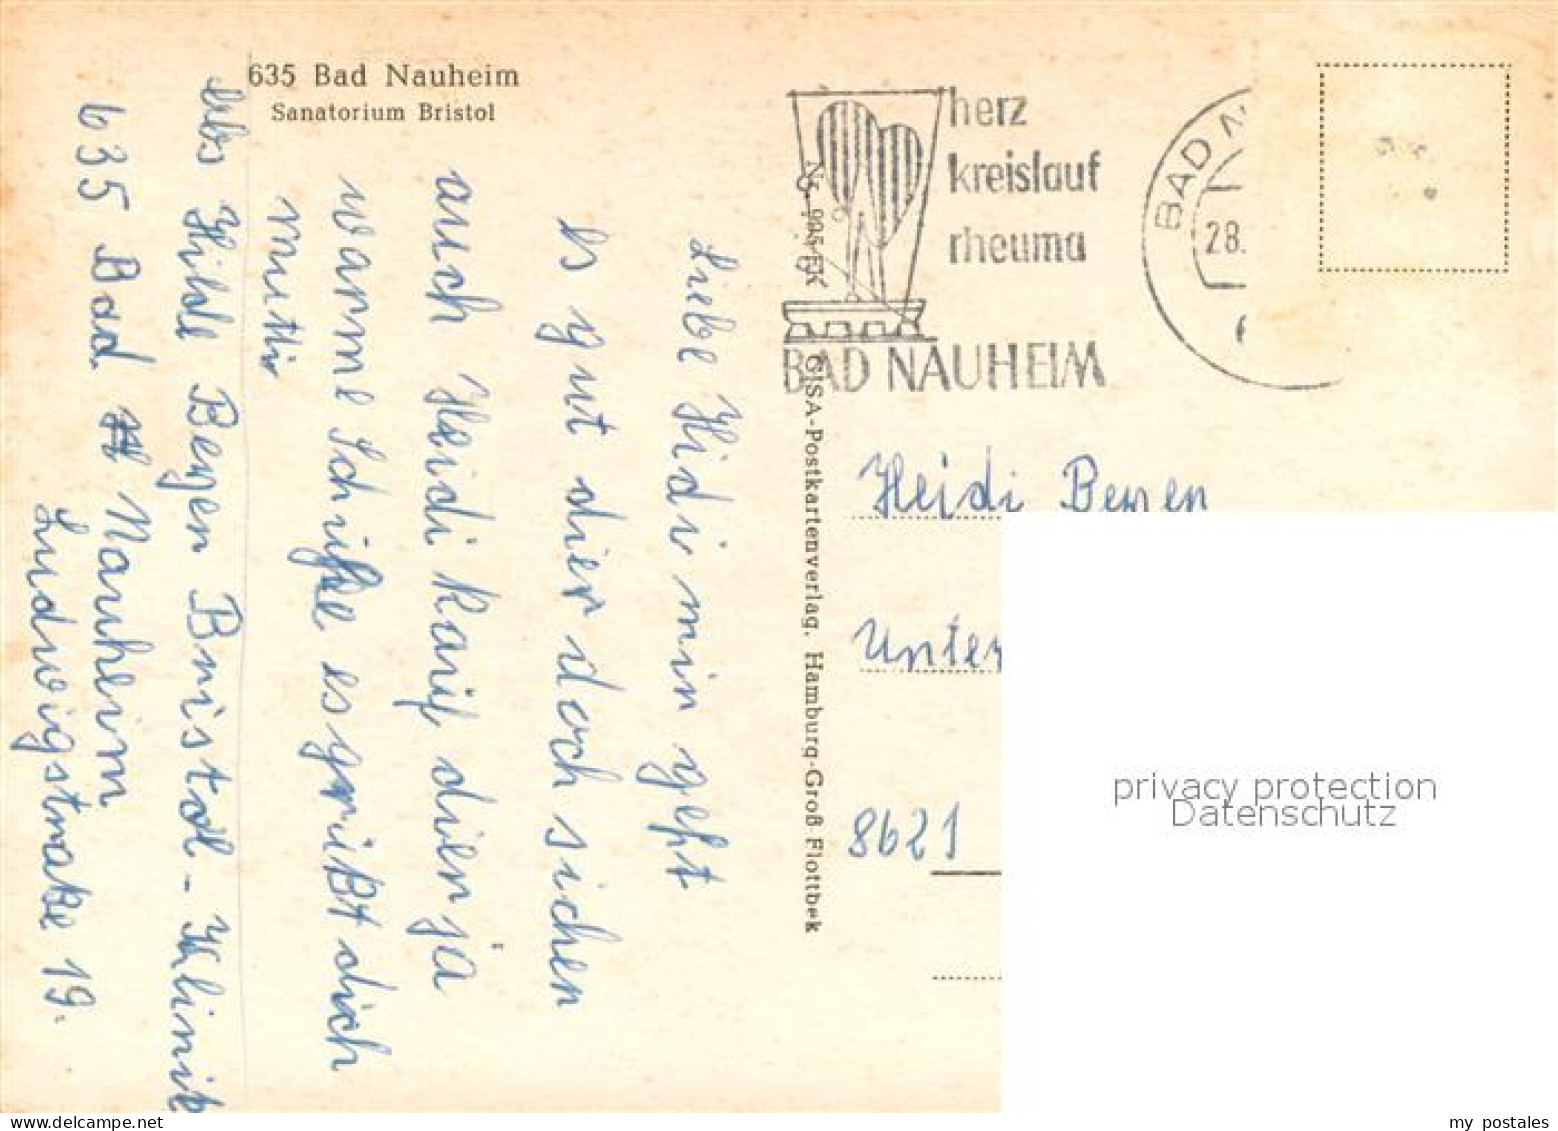 635 Bad Nauheim
Sanatorium Bristol
Liebe Hidi min geht
es gut dier doch sicher
auch Heidi kauf dier ja
warme Schuhe es grüßt dich
mutti
Abs Hilde Beyer Bristol-Klinik
635 Bad Nauheim
Ludwigstraße 19.
Nr. 995 EK
GISA-Postkartenverlag, Hamburg-Groß Flottbek
herz
kreislauf
rheuma
BAD NAUHEIM
BAD N
28.
6
Heidi Beyer
Unter
8621
privacy protection
Datenschutz
my postales
www.delcampe.net